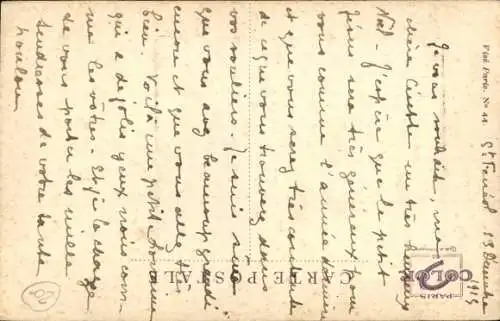 St Ferréol 13 Décembre 1915
Je vous souhaite, ma
chère Cousette un très heureux
Noël. J'espère que le petit
Jésus sera très généreux pour
vous comme l'année dernière
et que vous serez très contente
de ce que vous trouverez dans
vos souliers. Je suis sûre
que vous avez beaucoup grandi
encore et que vous allez très
bien. Voilà une petite Lorraine
qui a de jolis yeux noirs com-
me les vôtres. Et je la charge
de vous porter les mille
tendresses de votre tante
Loulou
Visé Paris. No 44
CARTE POSTALE
COLOR
PARIS